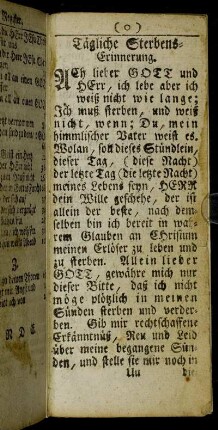 ( o )
Tägliche Sterbens-
Erinnerung.
ACh lieber GOTT und
HErr, ich lebe aber ich
weiß nicht wie lange;
Ich muß sterben, und weiß
nicht, wenn; Du, mein
himmlischer Vater weist es.
Wolan, soll dieses Stündlein,
dieser Tag, (diese Nacht)
der letzte Tag (die letzte Nacht)
meines Lebens seyn, HERR
dein Wille geschehe, der ist
allein der beste, nach dem-
selben bin ich bereit in wah-
rem Glauben an Christum
meinen Erlöser zu leben und
zu sterben. Allein lieber
GOTT, gewähre mich nur
dieser Bitte, daß ich nicht
möge plötzlich in meinen
Sünden sterben und verder-
ben. Gib mir rechtschaffene
Erkänntnüß, Reu und Leid
über meine begangene Sün-
den, und stelle sie mir noch in
Uu